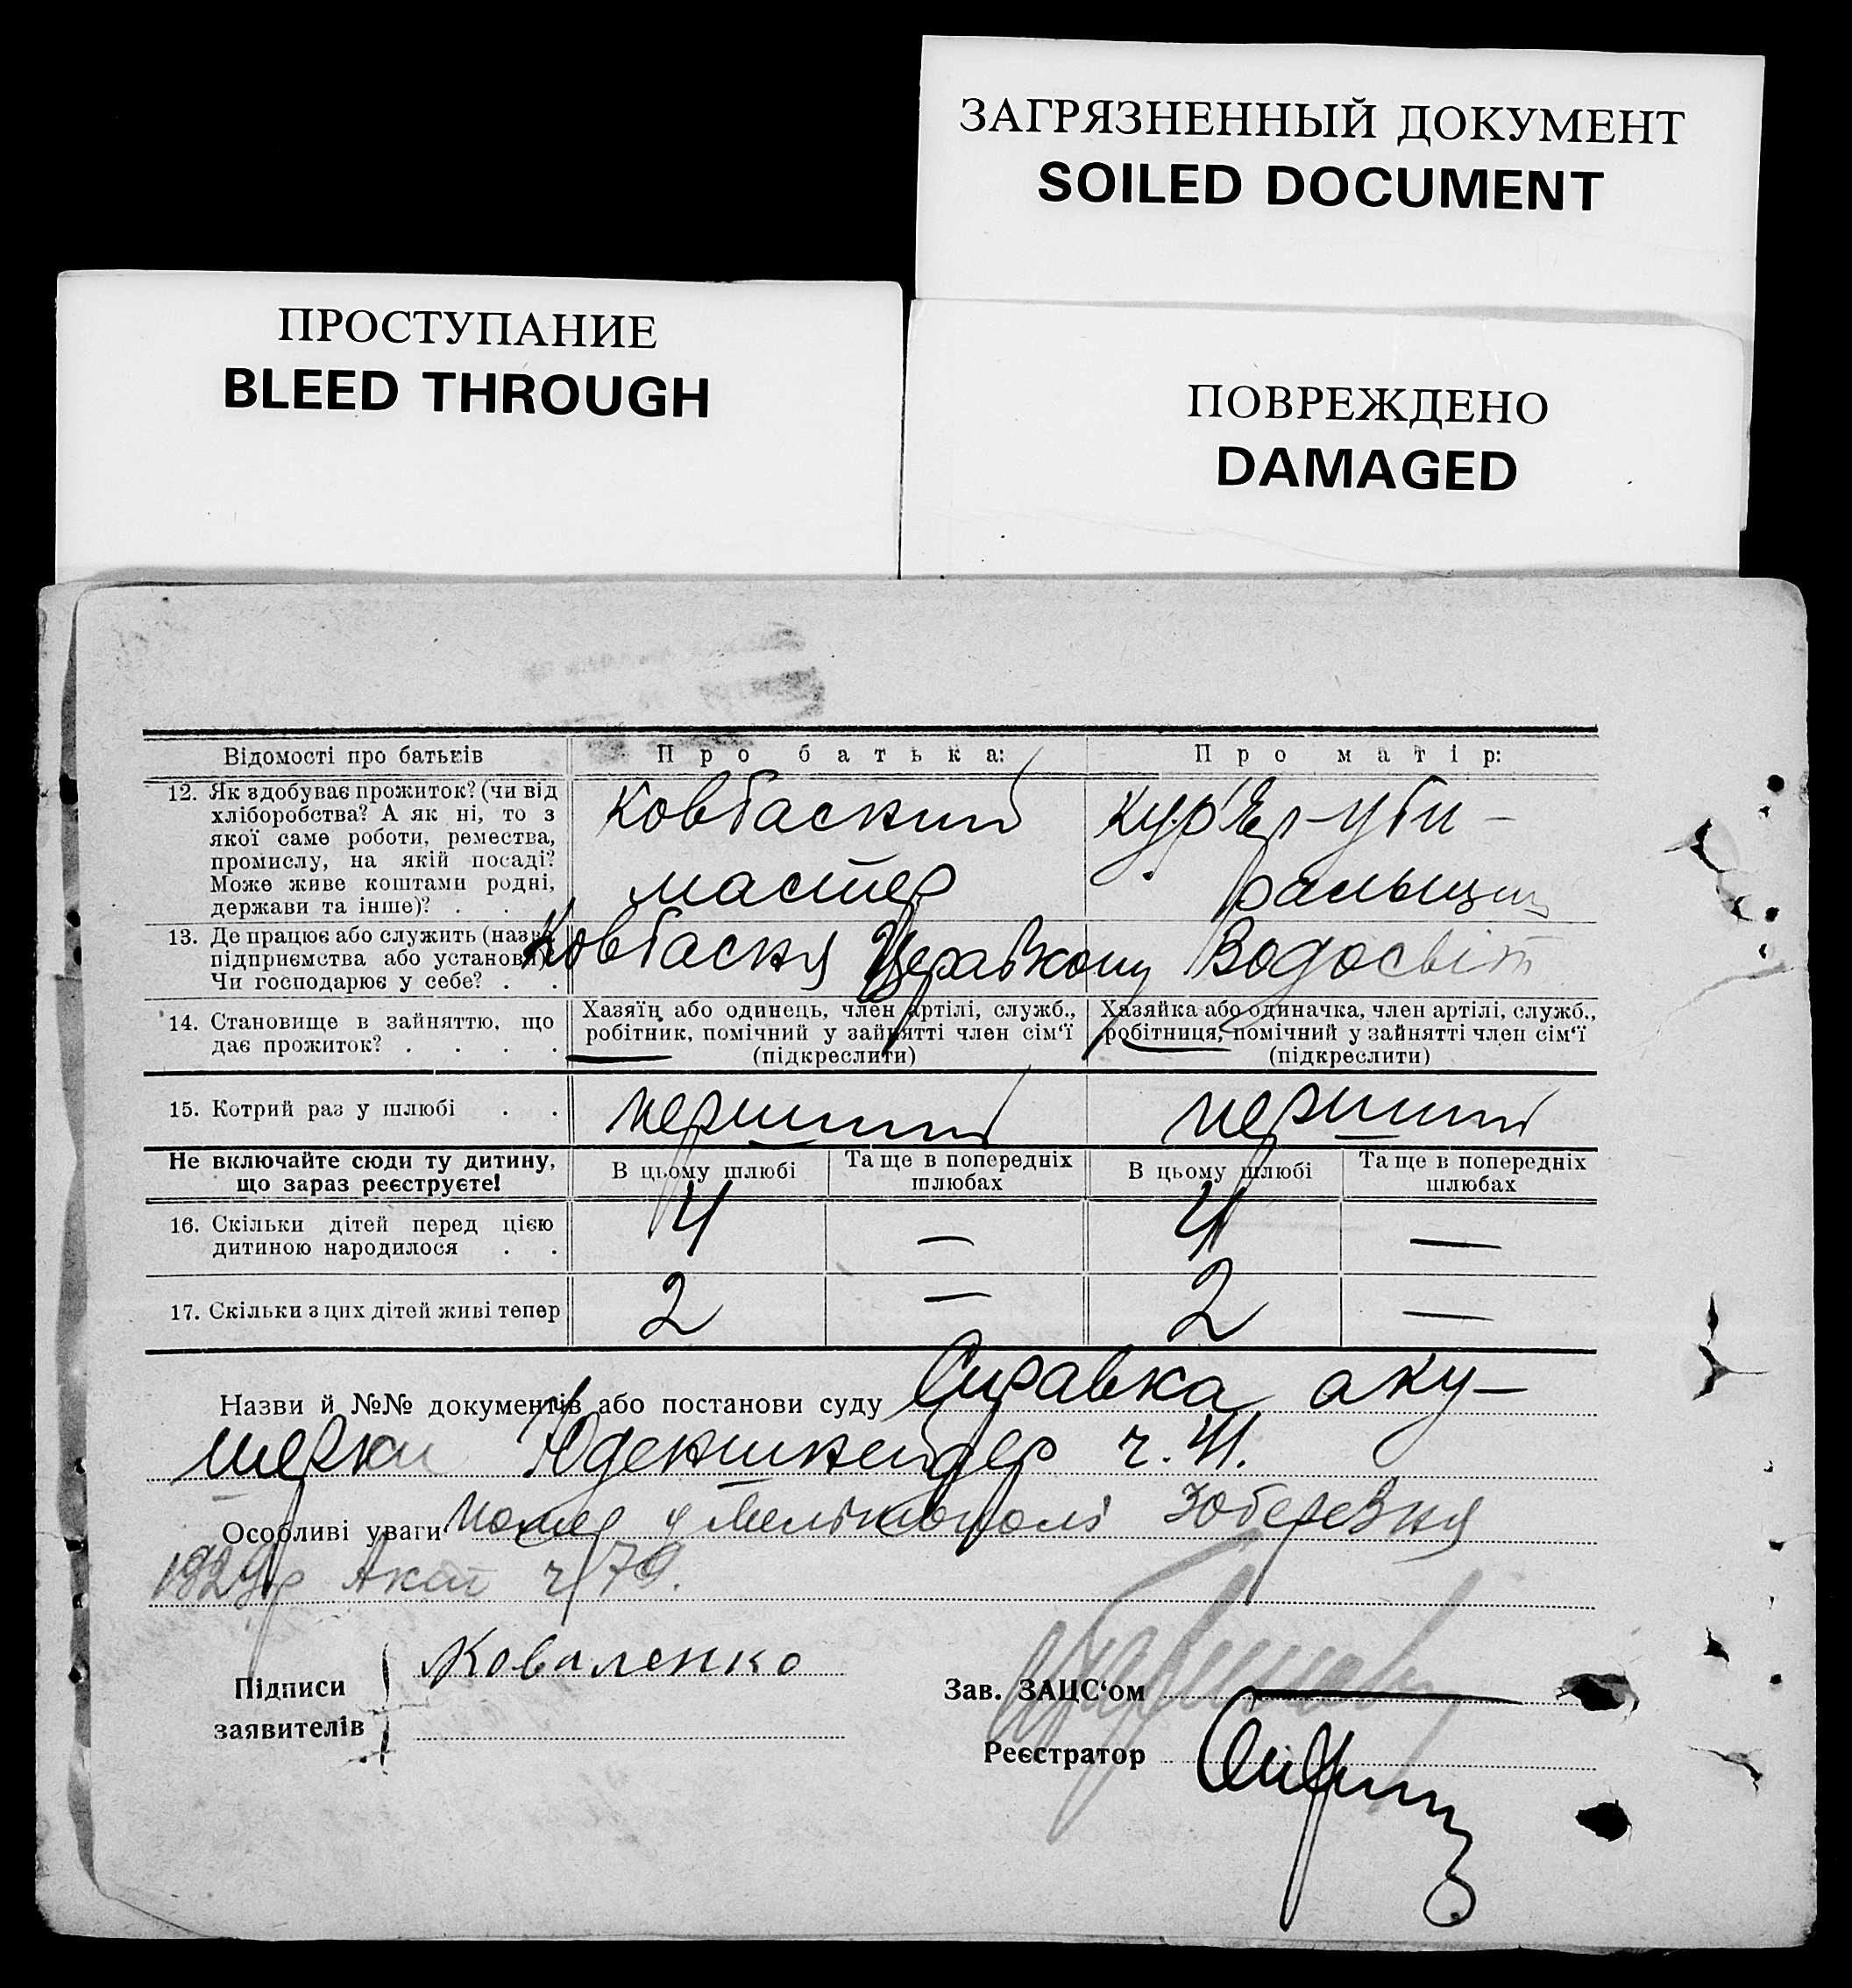 ЗАГРЯЗНЕННЫЙ ДОКУМЕНТ
SOILED DOCUMENT
ПРОСТУПАНИЕ
BLEED THROUGH
ПОВРЕЖДЕНО
DAMAGED
Відомості про батьків
Про батька:
Про матір:
12. Як здобуває прожиток? (чи від
хліборобства? А як ні, то з
якої саме роботи, ремества,
промислу, на якій посаді?
Може живе коштами родні,
держави та інше)? . .
Ковбаский
мастер
Кур'єр-уби-
ральщиц
13. Де працює або служить (назва
підприємства або установи)?
Чи господарює у себе? . .
Ковбасня Церабкопу
Водосвіт
14. Становище в зайняттю, що
дає прожиток? . . . .
Хазяїн, або одинець, член артілі, служб.,
робітник, помічний у зайнятті член сім‘ї
(підкреслити)
Хазяйка або одиначка, член артілі, служб.,
робітниця, помічний у зайнятті член сім‘ї
(підкреслити)
15. Котрий раз у шлюбі . .
перший
перший
Не включайте сюди ту дитину,
що зараз реєструєте!
В цьому шлюбі
Та ще в попередніх
шлюбах
В цьому шлюбі
Та ще в попередніх
шлюбах
16. Скільки дітей перед цією
дитиною народилося . .
4 — 4 —
17. Скільки з цих дітей живі тепер
2 — 2 —
Назви й №№ документів або постанови суду Справка аку-
шерки ч. 41.
Особливі уваги Помер у Мелітополі 30 березня
1929р Акт ч 79.
Підписи
заявителів
Коваленко
Зав. ЗАЦС‘ом
Реєстратор